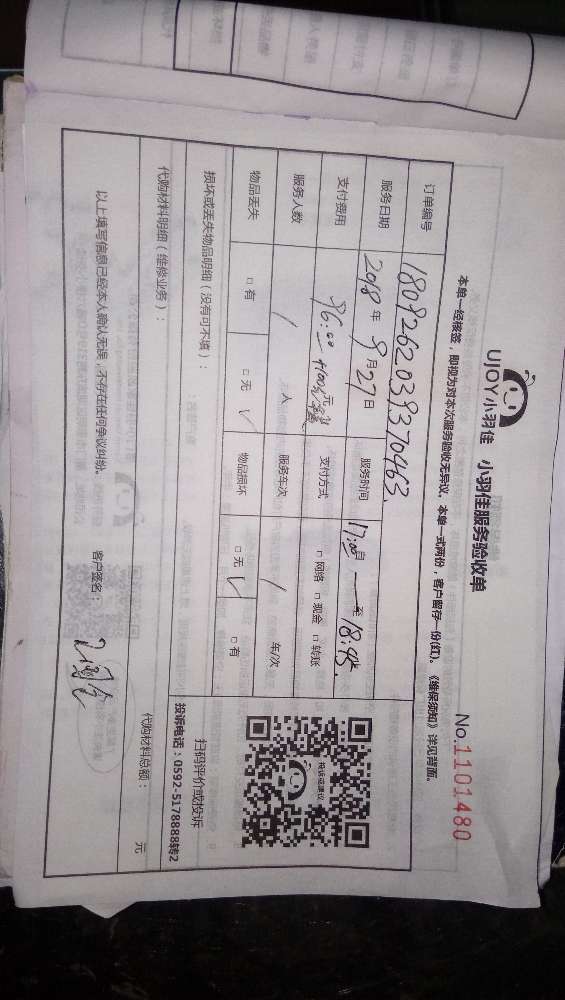 UJOY小羽佳 小羽佳服务验收单
No.1101480
本单一经核签，即视为对本次服务验收无异议。本单一式两份，客户留存一份(红)。《维保须知》详见背面。
订单编号 180926203937046​3
服务日期 2018年9月27日 服务时间 17:00 至 18:45
支付费用 96:00 支付方式 □网络 □现金 □转账
服务人数 / 人 服务车次 / 年/次
物品丢失 □有 □无 √ 物品损坏 □无 √ □有
损坏或丢失物品明细（没有可不填）：
投诉或建议
扫码评价或投诉
投诉电话：0592-5178888转2
代购材料明细（维修业务）：
代购材料总额： 元
以上填写信息已经本人确认无误，不存在任何争议纠纷。 客户签名：